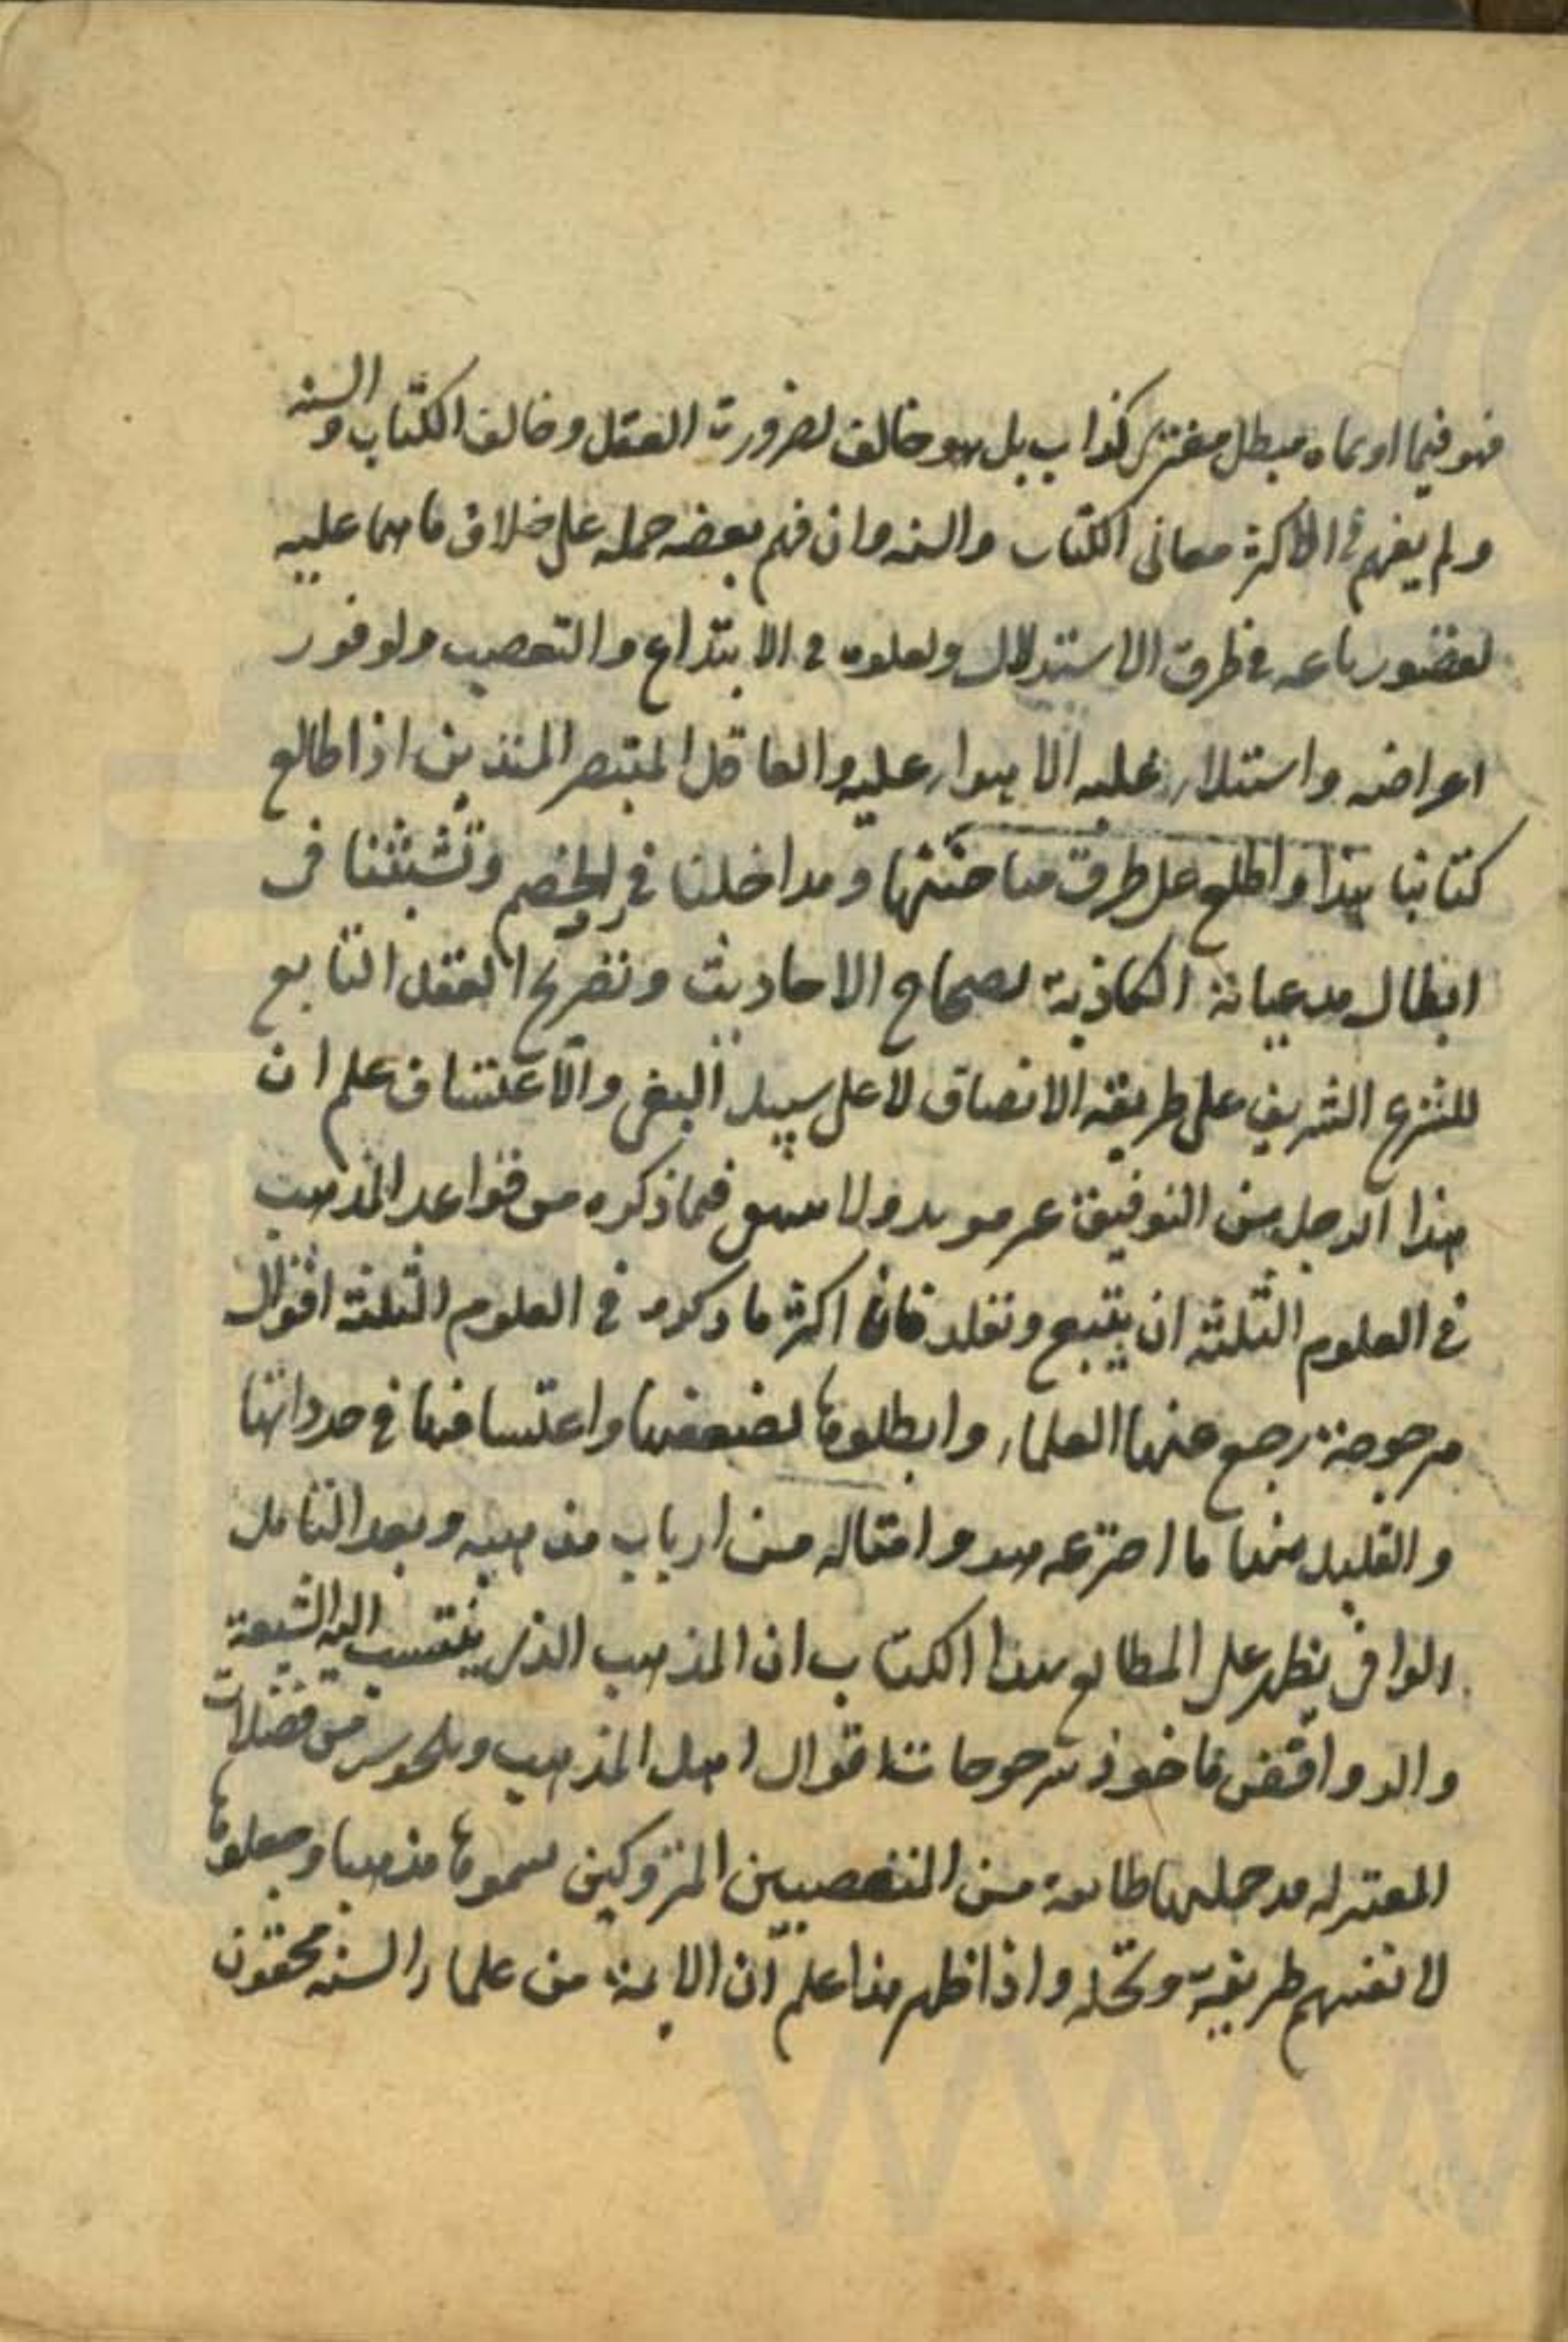 فهو فيما ادعاه مبطل مفتر كذاب بل هو خالف لضرورت العقل وخالف الكتاب والسنه
ولم يفهم في الاكثر معانى الكتاب والسنه وان فهم بعضه حمله على خلاف ما هما عليه
لقصور باعه في طرق الاستدلال ولعلوه في الابتداع والتعصب ولوفور
اعراضه واستلاء غلبه الاهواء عليه والعاقل المتبصر المتدين اذا طالع
كتابنا هذا واطلع على طرق مباحثتها ومداخلنا في رد الخصم وتشبثنا في
ابطال مدعياته الكاذبة لصحاح الاحاديث وتصريح العقل التابع
للشرع الشريف على طريقه الانصاف لا على سبيل البغى والاعتساف علم ان
هذا الرجل من التوفيق غير مويد ولا فيما ذكره من قواعد المذهب
في العلوم الثلثه ان يتبع وتقلد فان اكثر ما ذكره في العلوم الثلثه اقوال
مرجوحة رجع عنها العلماء وابطلوها لضعفها واعتسافها في حد ذاتها
والقليل منها ما اخترعه هو وامثاله من ارباب مذهبه وبعد التامل
الوافى يظهر على المطالع هذا الكتاب ان المذهب الذى ينتسب اليه الشيعة
والروافض ماخوذ مرجوحات اقوال اهل المذهب من فضلات
المعتزله قد جعلها طائفة من المتعصبين المتروكين سموها مذهبا وجعلوها
لانفسهم طريقة ونحلة واذا ظهر هذا علم ان الايمة من علماء السنه محقون